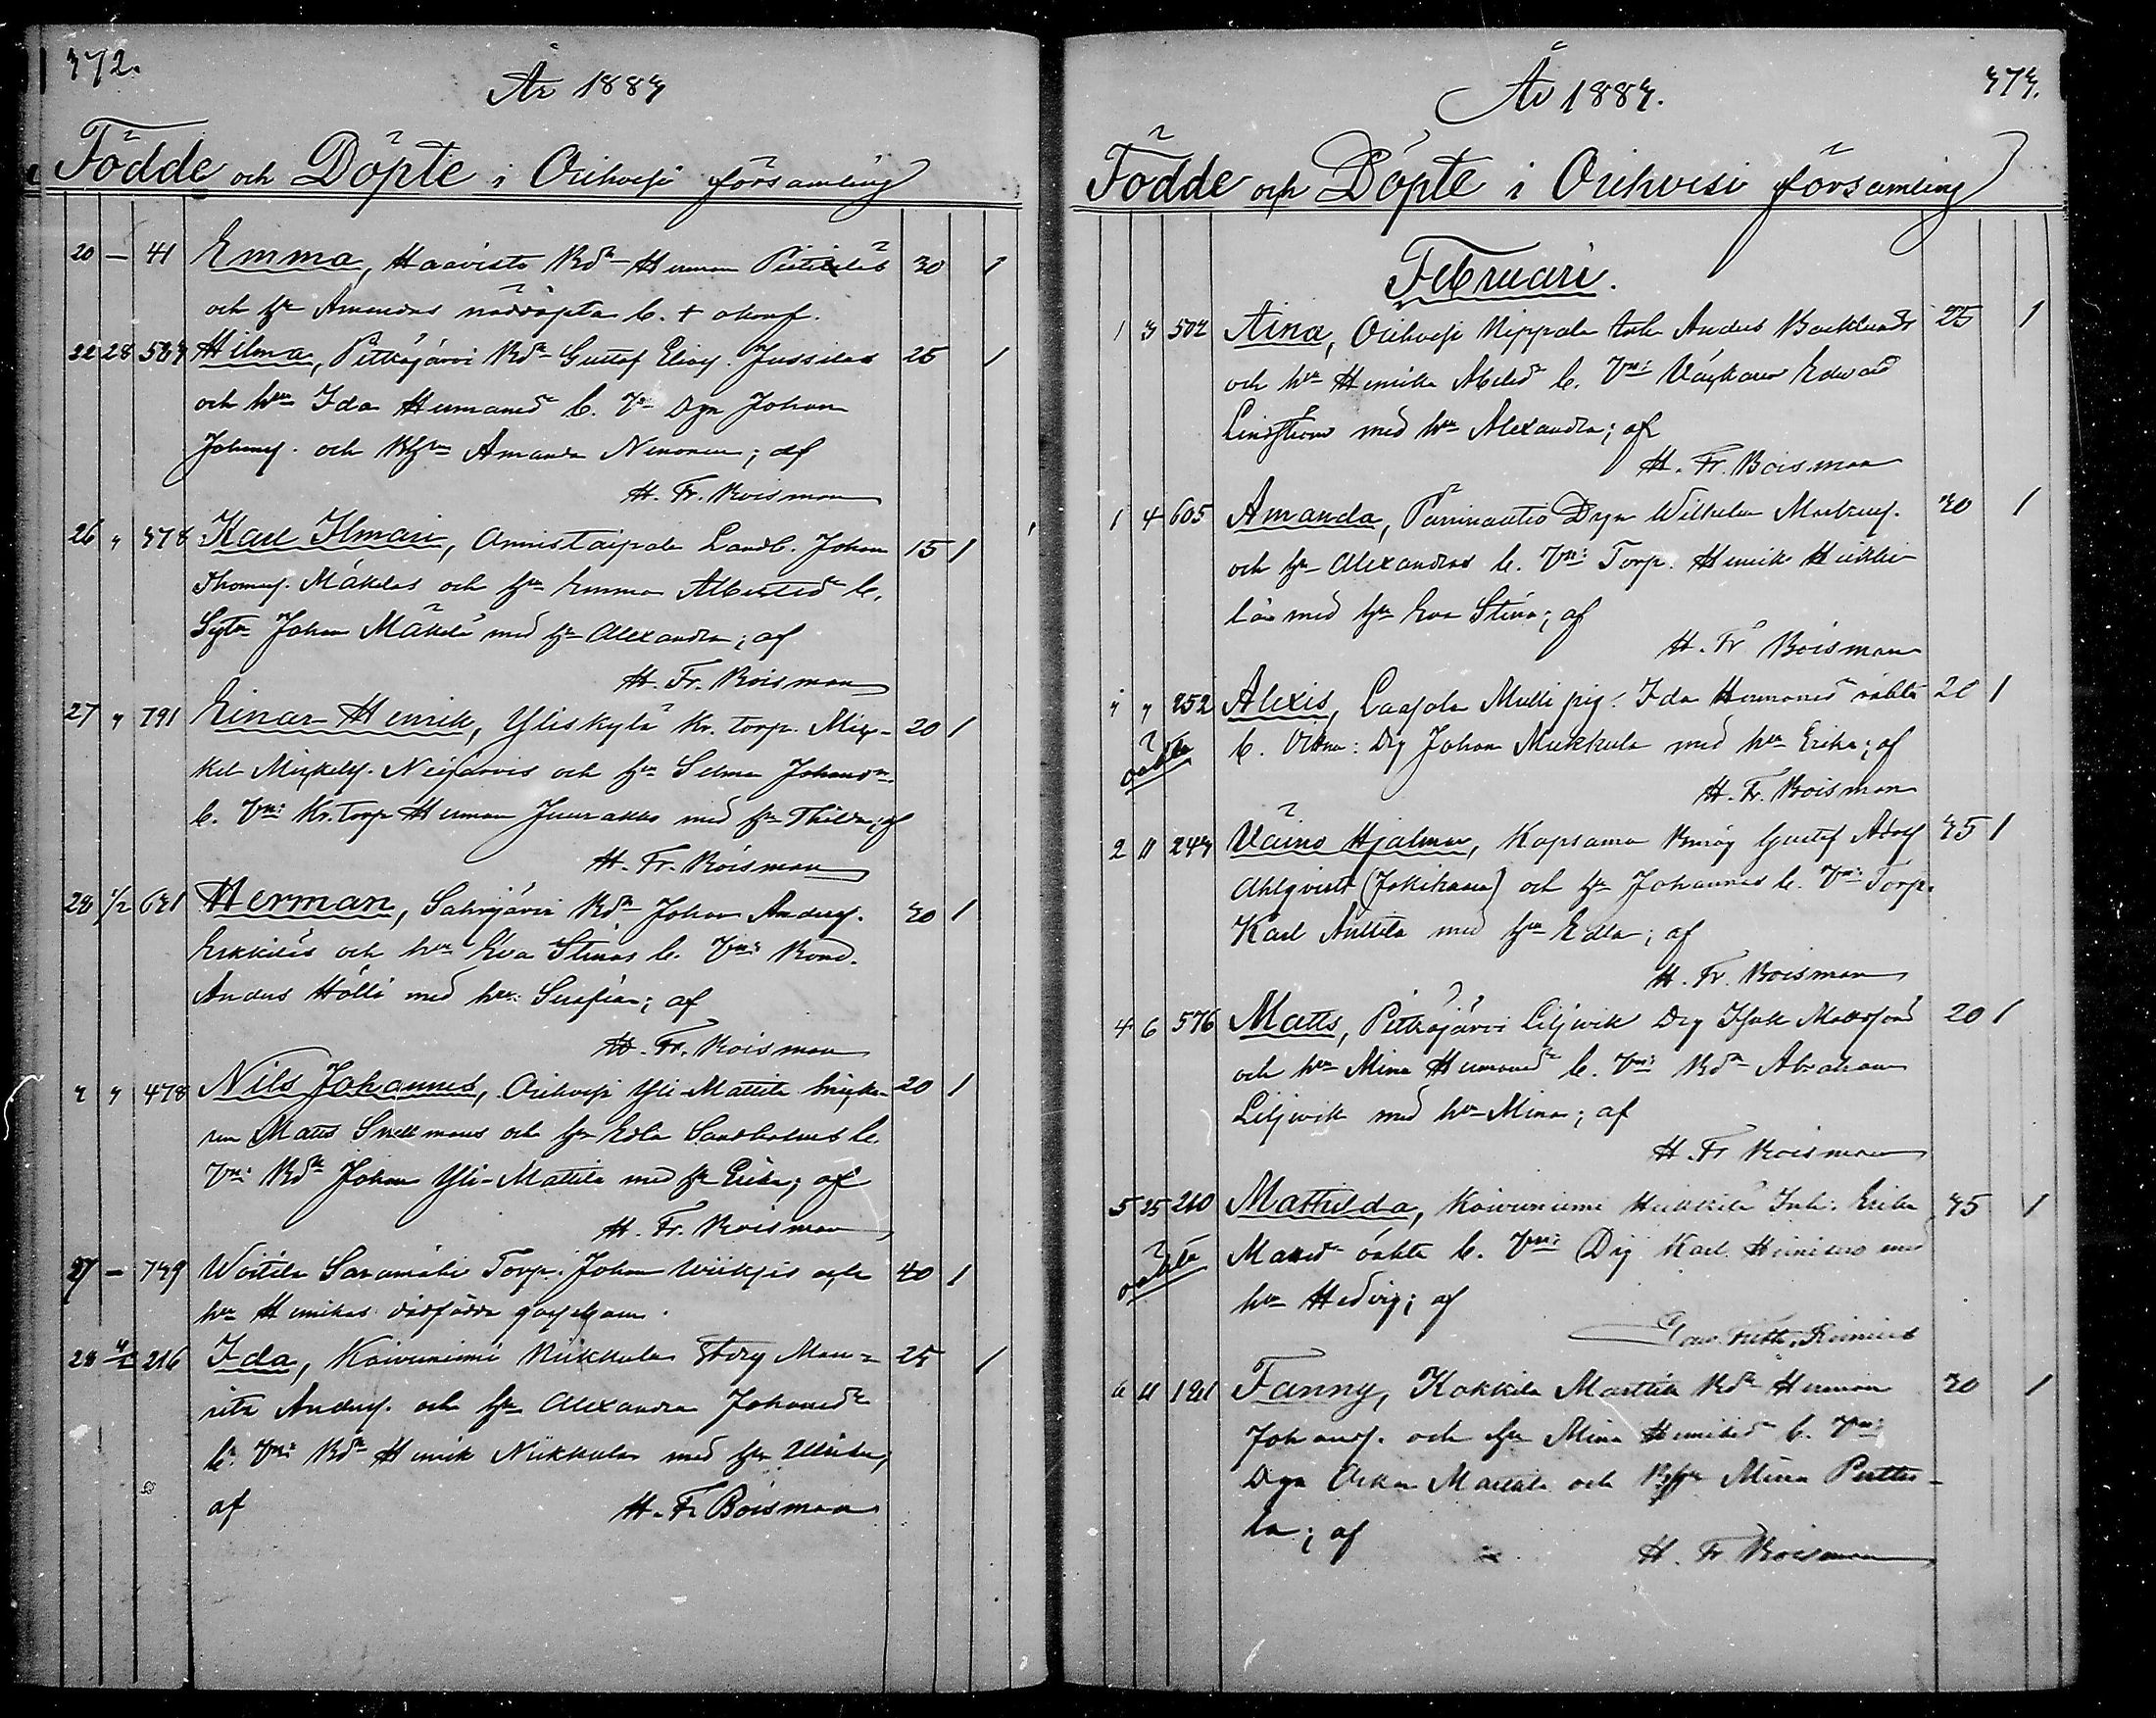 372.
År 1883
Födde och Döpte i Orihvesi församling
20 — 41 Emma, Haavisto Bdn Herman Pietiläs 30 1
och hu Amandas nöddöpta b. +
22 28 Hilma, Pitkäjärvi Bdn Gustaf Eliæs. Jussilas 25 1
och hu Ida Hermansdr b. Vn Dgn Johan
Johanss. och Amanda Nenonen; af
H. Fr. Boisman
26 " 378 Karl Ilmari, Onnistaipale Landb. Johan 15 1
Thomass. Mäkeläs och hu Emma Albertsdr b.
Sytn Johan Mäkelä med hu Alexandra; af
H. Fr. Boisman
27 " 791 Einar Henrik, Yliskylä Kr. torp. Mic- 20 1
kel Mickelss. Neijärvis och hu Selma Johansdr
b. Vn: Kr. torp Herman Juurakko med hu Thilda; af
H. Fr. Boisman
28 1/2 631 Herman, Sahrajärvi Bdn Johan Anderss. 30 1
Erkkiläs och hu Eva Stinas b. Vn: Bond.
Anders Hölli med hu: Serafia; af
H. Fr. Boisman
" " 478 Nils Johannes, Orihvesi Yli-Mattila 20 1
ren Matts Snellmans och hu Edla Sandholms b.
Vn: Bdn Johan Yli-Mattila med hu Erika; af
H. Fr. Boisman
27 — 749 Torp. Johan och 40 1
hu Henrikas dödfödda gossebarn.
28 4/2 216 Ida, Koivuniemi Niikkula Stdrg Mau- 25 1
ritz Anderss. och hu Alexandra Johansdr
b. Vn: Bdn Henrik Niikkula med hu Ulrika;
af H. Fr. Boisman
373.
År 1883.
Födde och Döpte i Orihvesi församling
Februari.
1 3 502 Aina, Orihvesi Nippala Anders Backlunds 25 1
och hu Henrika Abelsdr b. Vn: Edvard
Lindström med hu Alexandra; af
H. Fr. Boisman
1 4 605 Amanda, Päninautio Drgn Wilhelm 30 1
och hu Alexandras b. Vn: Torp. Henrik Heikki-
lä med hu Eva Stina; af
H. Fr Boisman
" " 252 Alexis, Laasola Mulli pig. Ida Hermansdr oäkta 20 1
oäkta b. Vittne: Drg Johan Mukkula med hu Erika; af
H. Fr. Boisman
2 11 243 Väinö Hjalmar, Kapsama Gustaf Adolf 35 1
Ahlqvist (Jokihaara) och hu Johannas b. Vn: Torp.
Karl Anttila med hu Edla; af
H. Fr. Boisman
4 6 576 Matts, Pitkäjärvi Liljvik Drg Isak Mattsson 20 1
och hu Mina Hermansdr b. Vn: Bdn Abraham
Liljvik med hu Mina; af
H. Fr Boisman
5 25 210 Mathilda, Koivuniemi Heikkilä Inh. Erika 35 1
oäkta Mattsdr oäkta b. Vn: Drg Karl med
hu Hedvig; af
6 11 Fanny, Kokkila Marttila Bdn Herman 30 1
Johanss. och hu Mina Henriksdr b. Vn:
Dgn Oskar Marttila och Mina Pertti-
la; af
H. Fr Boisman